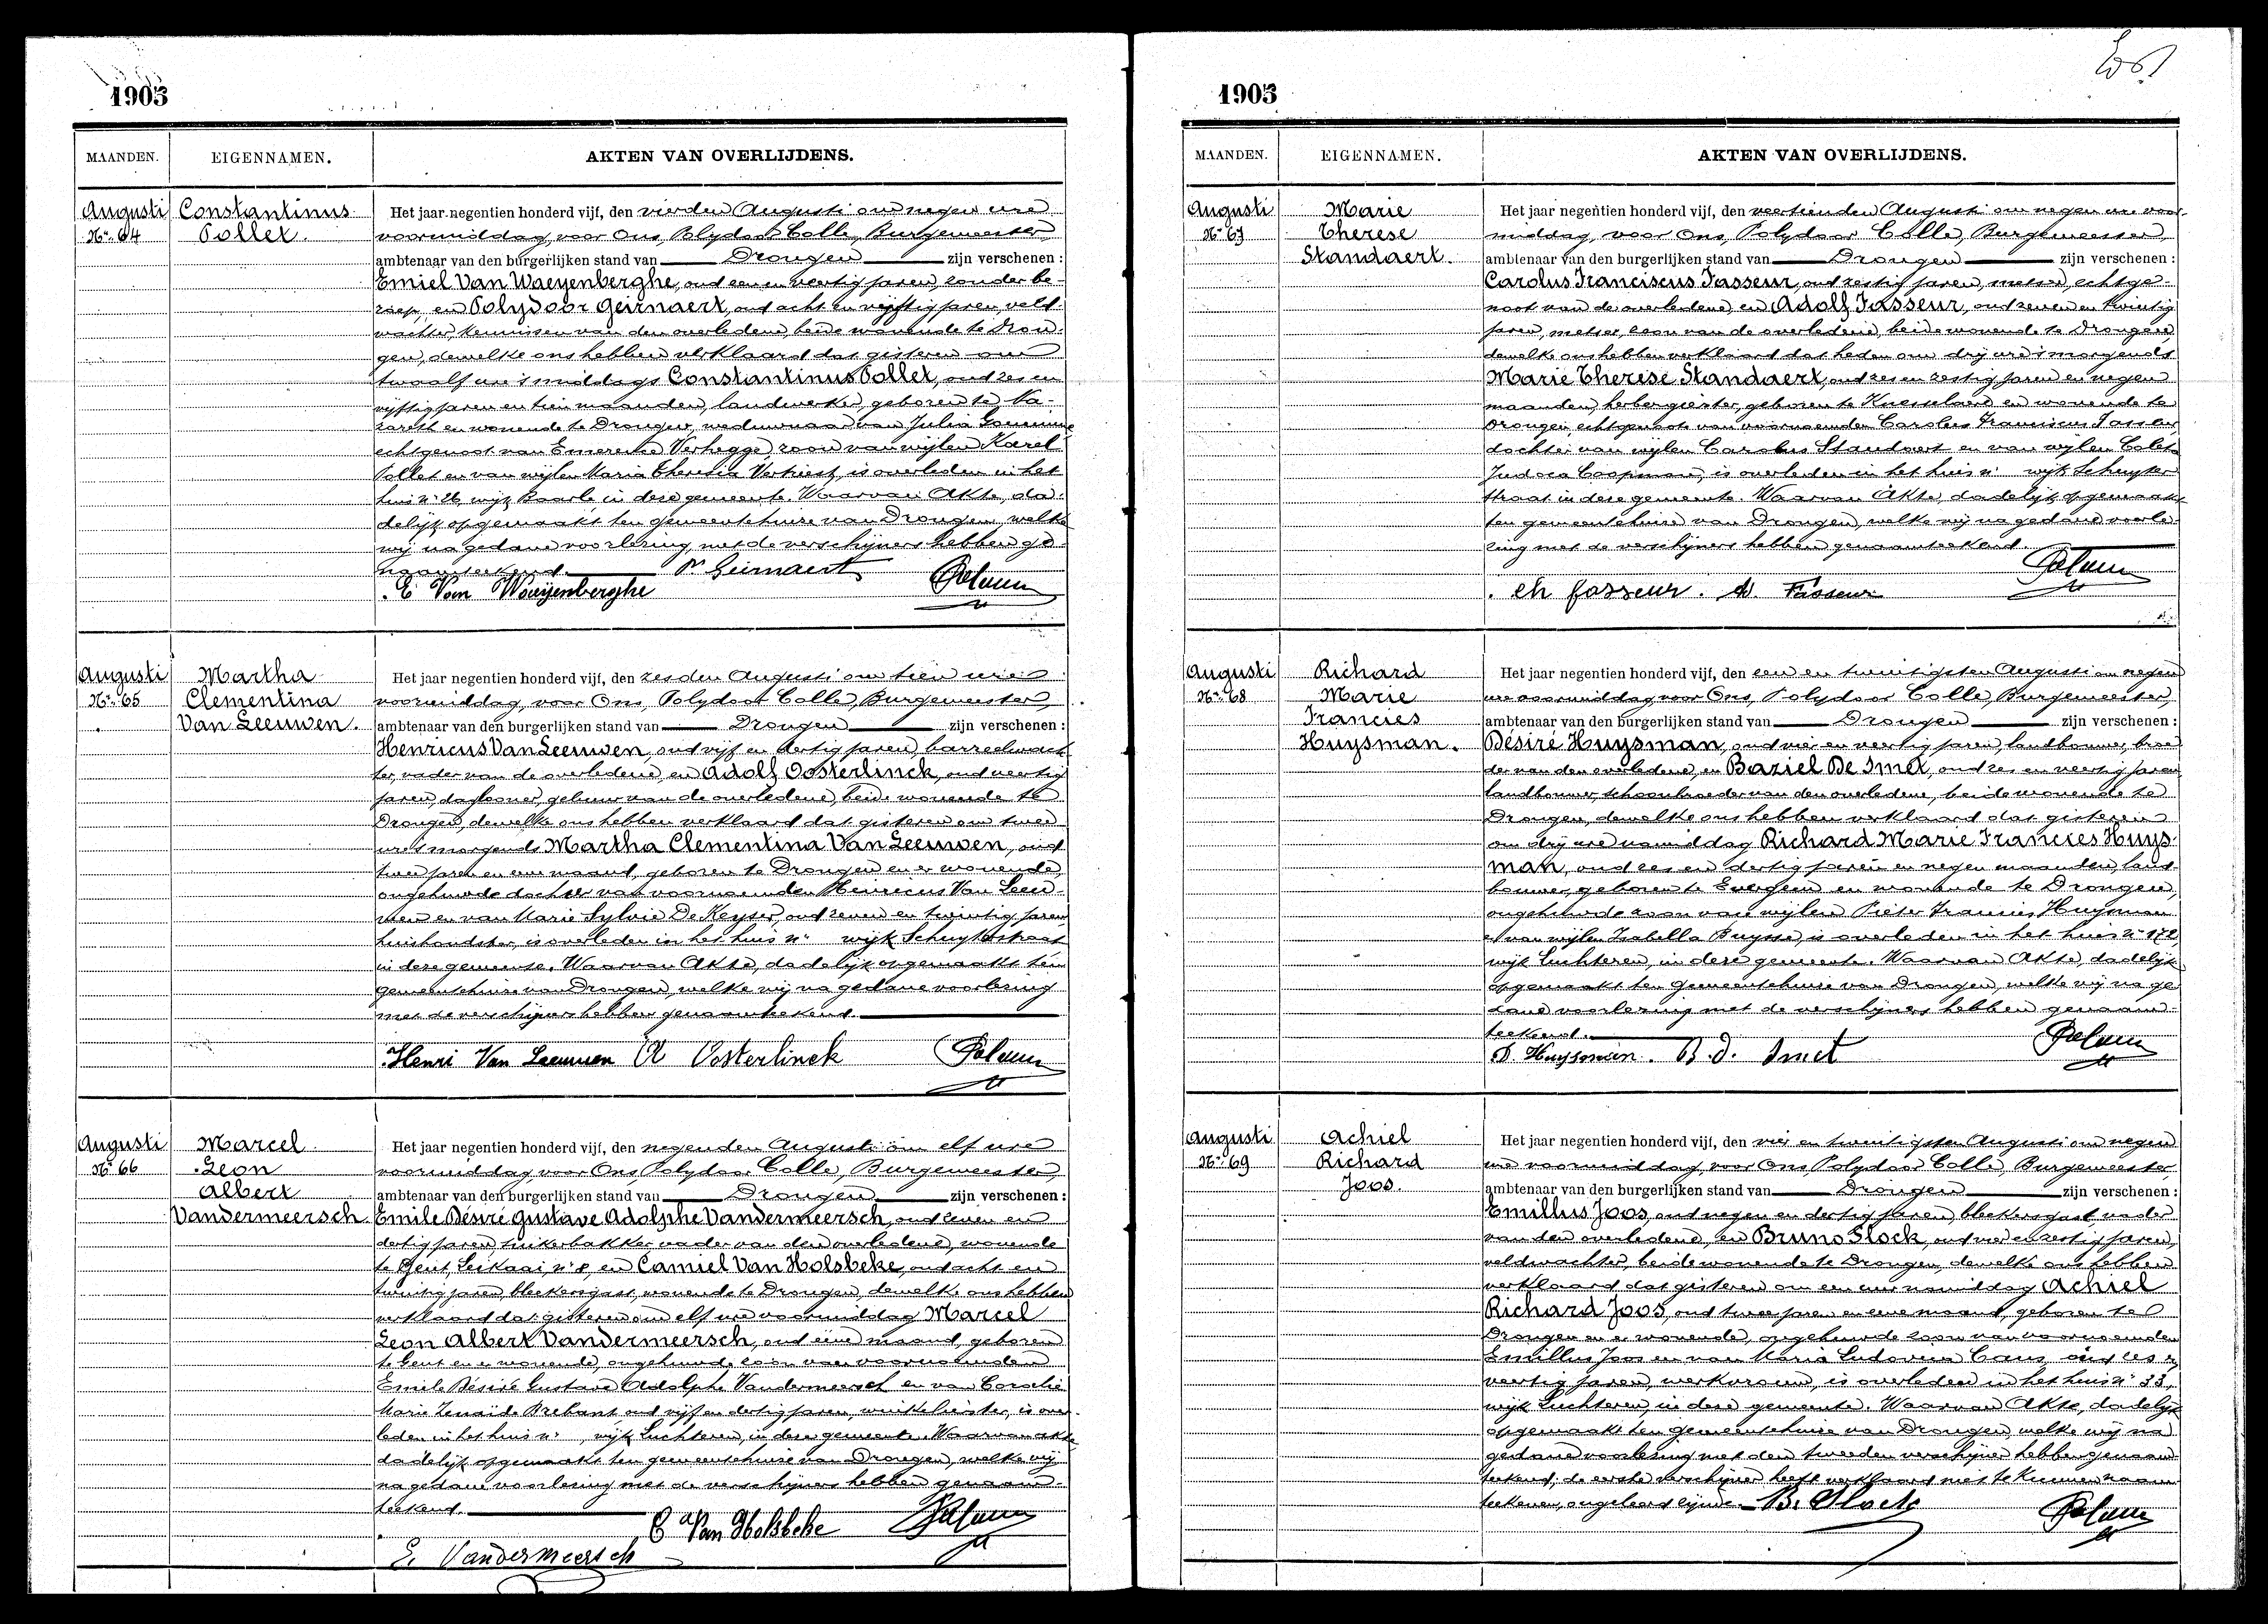 1905
MAANDEN. EIGENNAMEN. AKTEN VAN OVERLIJDENS.
Augusti
Nr. 64
Constantinus
Pollet.
Het jaar negentien honderd vijf, den vierden Augusti om negen ure
voormiddag, voor Ons, Polydoor Colle, Burgemeester,
ambtenaar van den burgerlijken stand van Drongen zijn verschenen :
Emiel Van Waeyenberghe, oud een en veertig jaren, zonder be-
roep, en Polydoor Geirnaert, oud acht en vijftig jaren, veld-
wachter, kennissen van den overledene, beide wonende te Dron-
gen, dewelke ons hebben verklaard dat gisteren om
twaalf ure 's middags Constantinus Pollet, oud zes en
vijftig jaren en tien maanden, landwerker, geboren te Na-
zareth en wonende te Drongen, weduwnaar van Julia
echtgenoot van Emerentie Verhegge, zoon van wijlen Karel
Pollet en van wijlen Maria Theresia Verkiest, is overleden in het
huis nr. 26, wijk Baarle, in deze gemeente. Waarvan Akte, da-
delijk opgemaakt ten gemeentehuize van Drongen, welke
wij na gedane voorlezing, met de verschijners hebben ge-
naamteekend. P. Geirnaert
E. Van Waeyenberghe
Augusti
Nr. 65
Martha
Clementina
Van Leeuwen.
Het jaar negentien honderd vijf, den zesden Augusti om tien ure
voormiddag, voor Ons, Polydoor Colle, Burgemeester,
ambtenaar van den burgerlijken stand van Drongen zijn verschenen :
Henricus Van Leeuwen, oud vijf en dertig jaren, barreelwach-
ter, vader van de overledene, en Adolf Oosterlinck, oud veertig
jaren, daglooner, gebuur van de overledene, beide wonende te
Drongen, dewelke ons hebben verklaard dat gisteren om twee
ure 's morgends Martha Clementina Van Leeuwen, oud
twee jaren en eene maand, geboren te Drongen en er wonende,
ongehuwde dochter van voornoemden Henricus Van Leeu-
wen en van Marie Sylvie De Keyser, oud zeven en twintig jaren,
huishoudster, is overleden in het huis nr. wijk Schuytstraat
in deze gemeente. Waarvan Akte, dadelijk opgemaakt ten
gemeentehuize van Drongen, welke wij na gedane voorlezing
met de verschijners hebben genaamteekend.
Henri Van Leeuwen A Oosterlinck
Augusti
Nr. 66
Marcel
Leon
Albert
Vandermeersch
Het jaar negentien honderd vijf, den negenden Augusti om elf ure
voormiddag, voor Ons, Polydoor Colle, Burgemeester,
ambtenaar van den burgerlijken stand van Drongen zijn verschenen :
Emile Désiré Gustave Adolphe Vandermeersch, oud zeven en
dertig jaren, suikerbakker, vader van den overledene, wonende
te Gent, Leikaai, nr. 8, en Camiel Van Holsbeke, oud acht en
twintig jaren, bleekersgast, wonende te Drongen, dewelke ons hebben
verklaard dat gisteren om elf ure voormiddag Marcel
Leon Albert Vandermeersch, oud eene maand, geboren
te Gent en er wonende, ongehuwde zoon van voornoemden
Emile Désiré Gustave Adolphe Vandermeersch en van Coralie
Marie Zenaïde Brebant, oud vijf en dertig jaren, winkelierster, is over-
leden in het huis nr. , wijk Luchteren, in deze gemeente. Waarvan akte
dadelijk opgemaakt ten gemeentehuize van Drongen, welke wij
na gedane voorlezing met de verschijners hebben genaam-
teekend.
C Van Holsbeke
E. Vandermeersch
1905
MAANDEN. EIGENNAMEN. AKTEN VAN OVERLIJDENS.
Augusti
Nr. 67
Marie
Therese
Standaert.
Het jaar negentien honderd vijf, den veertienden Augusti om negen ure voor-
middag, voor Ons, Polydoor Colle, Burgemeester,
ambtenaar van den burgerlijken stand van Drongen zijn verschenen :
Carolus Franciscus Fasseur, oud zestig jaren, metser, echtge-
noot van de overledene, en Adolf Fasseur, oud zeven en twintig
jaren, metser, zoon van de overledene, beide wonende te Drongen,
dewelke ons hebben verklaard dat heden om drij ure 's morgends
Marie Therese Standaert, oud zes en zestig jaren en negen
maanden, herbergierster, geboren te Knesselare en wonende te
Drongen, echtgenoote van voornoemden Carolus Franciscus Fasseur,
dochter van wijlen Carolus Standaert en van wijlen Coleta
Judoca Coopman, is overleden in het huis nr. wijk Schuyter-
straat in deze gemeente. Waarvan Akte, dadelijk opgemaakt
ten gemeentehuize van Drongen, welke wij na gedane voorle-
zing met de verschijners hebben genaamteekend.
ch fasseur. Ad. Fasseur
Augusti
Nr. 68
Richard
Marie
Francies
Huysman.
Het jaar negentien honderd vijf, den een en twintigsten Augusti om negen
ure voormiddag voor Ons, Polydoor Colle, Burgemeester,
ambtenaar van den burgerlijken stand van Drongen zijn verschenen :
Désiré Huysman, oud vier en veertig jaren, landbouwer, broe-
der van den overledene, en Baziel De Smet, oud zes en veertig jaren
landbouwer, schoonbroeder van den overledene, beide wonende te
Drongen, dewelke ons hebben verklaard dat gisteren
om drij ure namiddag Richard Marie Francies Huys-
man, oud zes en dertig jaren en negen maanden, land-
bouwer, geboren te Evergem en wonende te Drongen,
ongehuwde zoon van wijlen Pieter Francies Huysman
en van wijlen Isabella Buysse, is overleden in het huis nr. 172,
wijk Luchteren, in deze gemeente. Waarvan Akte, dadelijk
opgemaakt ten gemeentehuize van Drongen, welke wij na ge-
dane voorlezing met de verschijners hebben genaam-
teekend.
D. Huysman. B. d. Smet
Augusti
Nr. 69
Achiel
Richard
Joos.
Het jaar negentien honderd vijf, den vier en twintigsten Augusti om negen
ure voormiddag, voor Ons Polydoor Colle, Burgemeester,
ambtenaar van den burgerlijken stand van Drongen zijn verschenen :
Emillus Joos, oud negen en dertig jaren, bleekersgast, vader
van den overledene, en Bruno Slock, oud vier en zestig jaren,
veldwachter, beide wonende te Drongen, dewelke ons hebben
verklaard dat gisteren om een ure namiddag Achiel
Richard Joos, oud twee jaren en eene maand, geboren te
Drongen en er wonende, ongehuwde zoon van voornoemden
Emillus Joos en van Maria Ludovica Caus, oud zes en
veertig jaren, werkvrouw, is overleden in het huis nr. 33,
wijk Luchteren, in deze gemeente. Waarvan Akte, dadelijk
opgemaakt ten gemeentehuize van Drongen, welke wij na
gedane voorlezing met den tweeden verschijner hebben genaam-
teekend; de eerste verschijner heeft verklaard niet te kunnen naam-
teekenen, ongeleerd zijnde. B. Slock